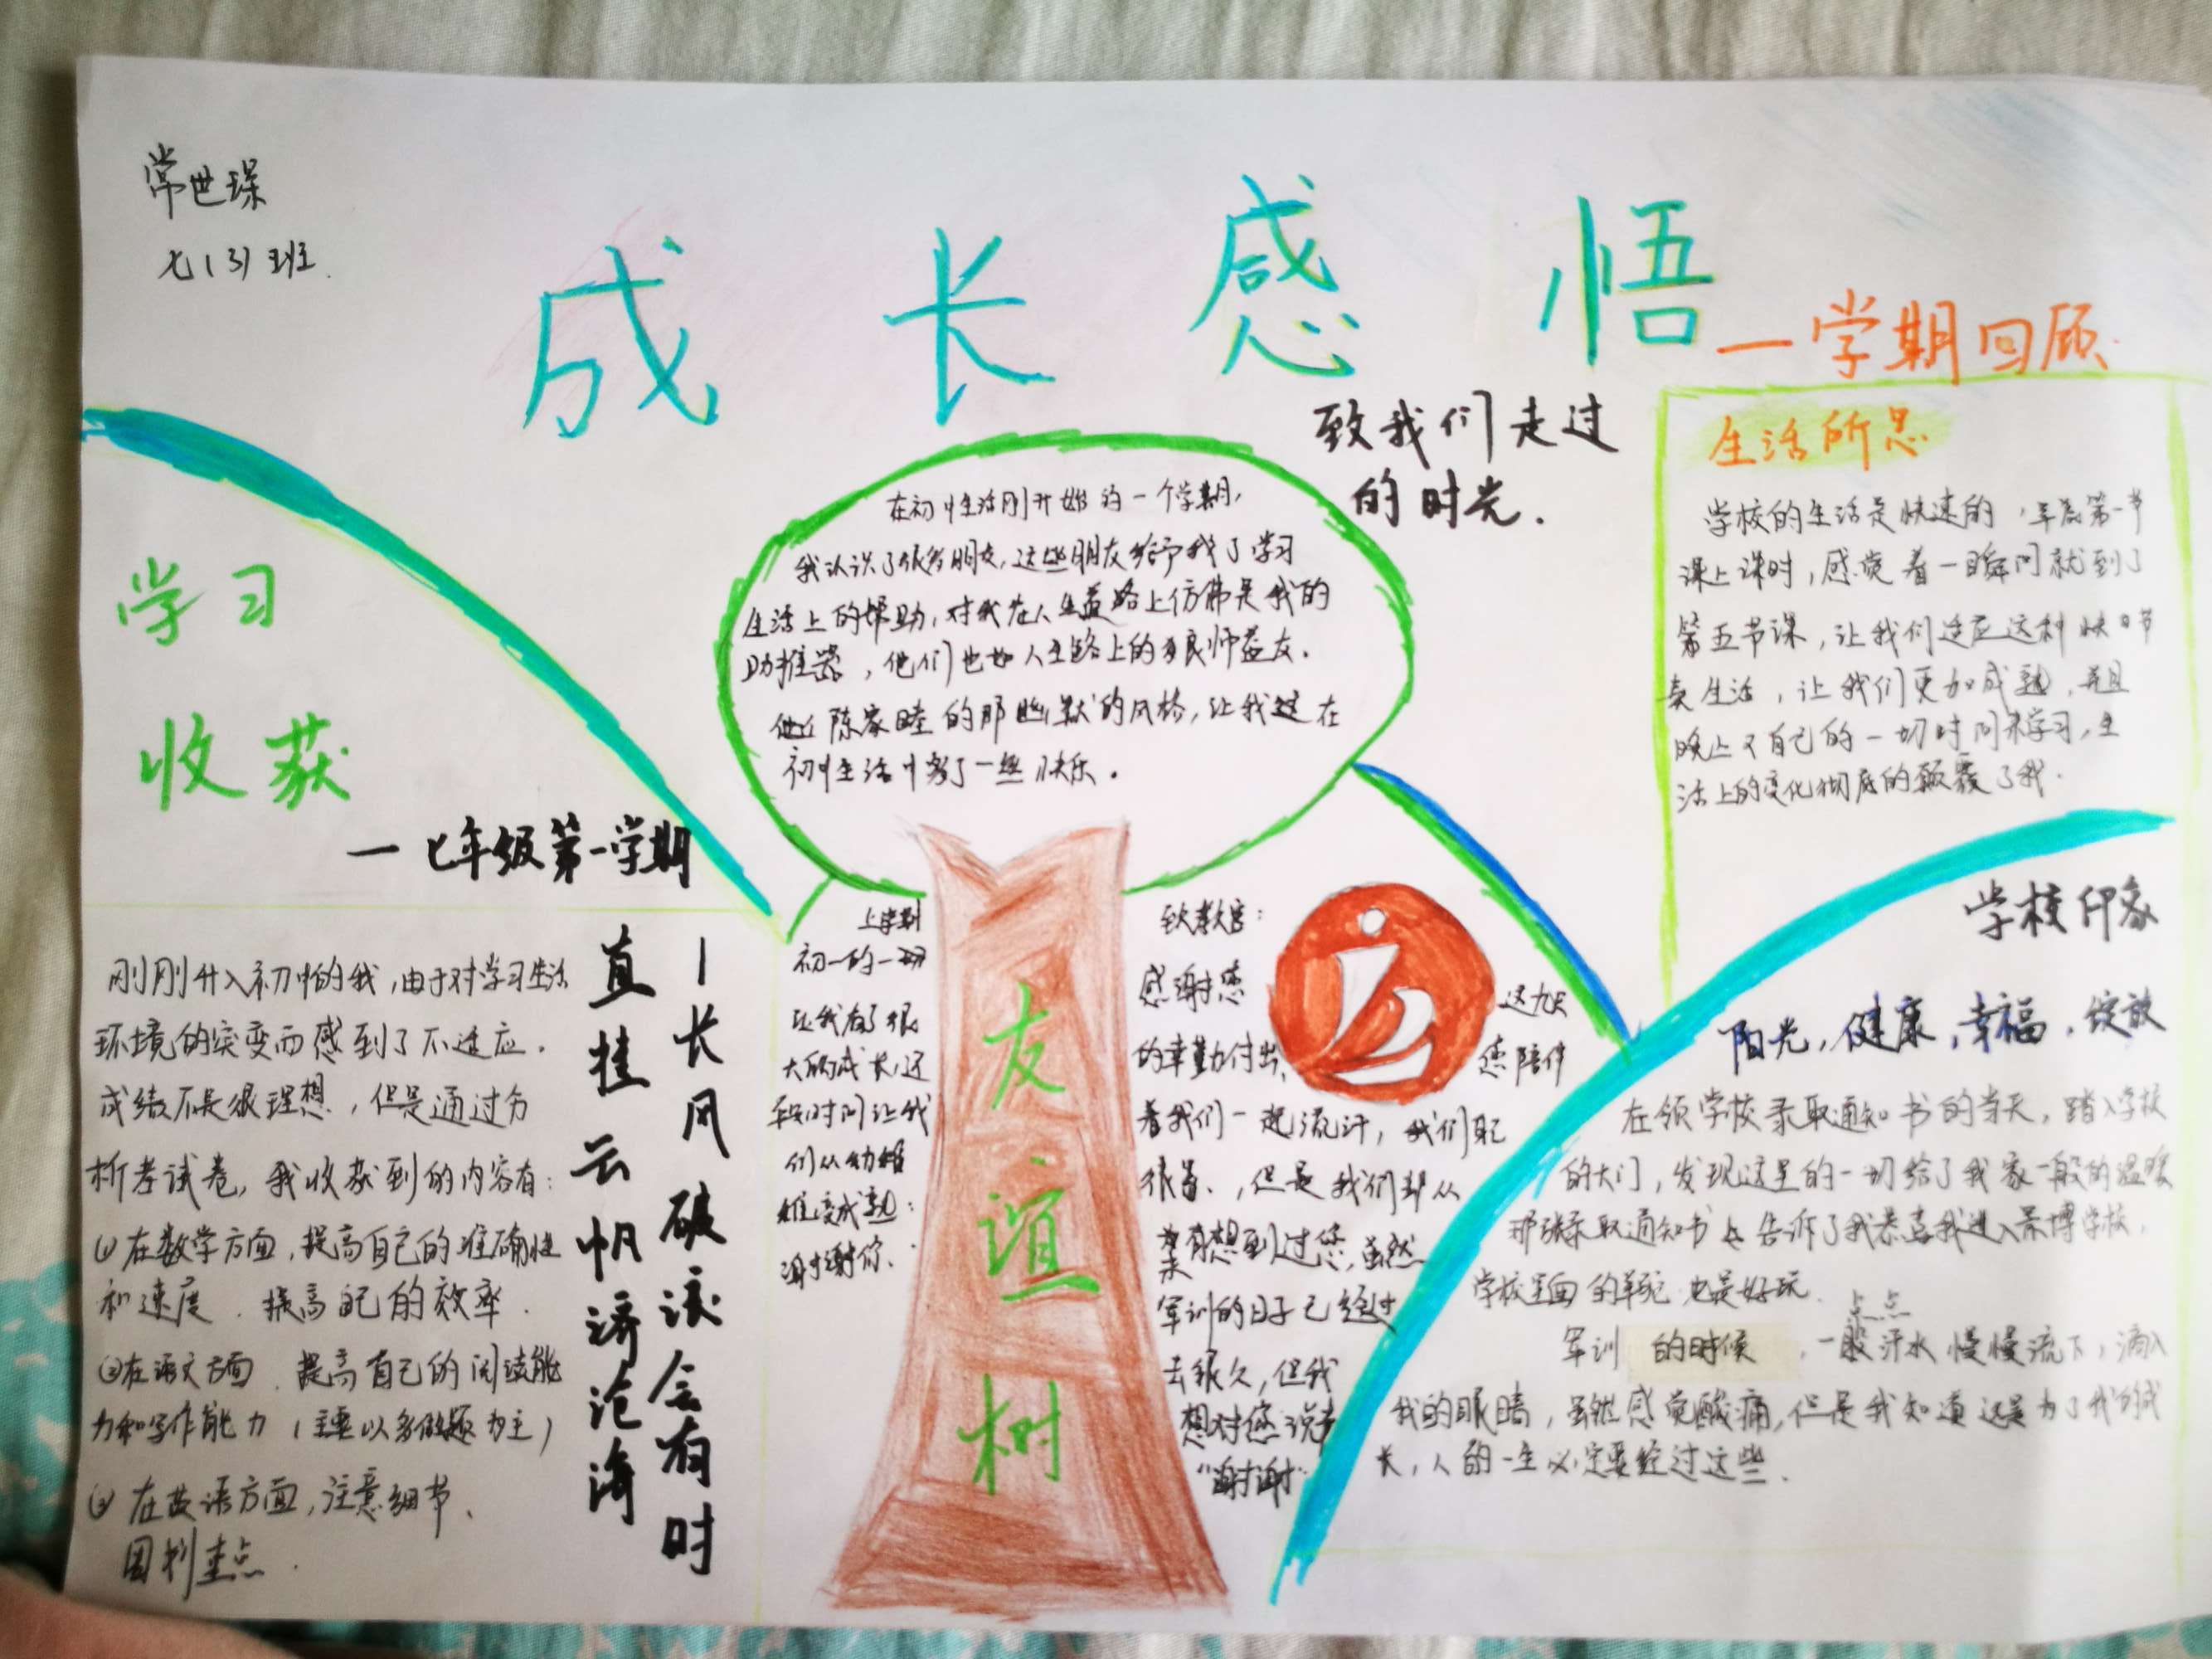 常世琛
七(3)班
成长感悟
一学期回顾
致我们走过
的时光.
学习
收获
一七年级第一学期
刚刚升入初中的我,由于对学习生活
环境的突变而感到了不适应.
成绩不是很理想,但是通过分
析考试卷,我收获到的内容有:
①在数学方面,提高自己的准确性
和速度.提高自己的效率.
②在语文方面.提高自己的阅读能
力和写作能力(主要以多做题为主)
③在英语方面,注意细节、
重点.
一长风破浪会有时
直挂云帆济沧海
在初中生活刚开始的一个学期,
我认识了很多朋友,这些朋友给予我了学习
生活上的帮助,对我在人生道路上仿佛是我的
助推器,他们也如人生路上的良师益友.
陈家睦的那幽默的风格,让我这在
初中生活中多了一些快乐.
友谊树
上学期
初一的一切
让我有了很
大的成长,这
时间让我
们从幼稚
变成熟:
谢谢你.
致教官:
感谢您这九天
的辛勤付出、您陪伴
着我们一起流汗,我们
很累、,但是我们却从
未有想到过您,虽然
军训的日子已经过
去很久,但我
想对您说声
"谢谢"
生活所思
学校的生活是快速的,早晨第一节
课上课时,感觉着一瞬间就到了
第五节课,让我们适应这种快节
奏生活,让我们更加成熟,并且
晚上又自己的一切时间来学习,生
活上的变化彻底的颠覆了我.
学校印象
阳光,健康,幸福,绽放
在领学校录取通知书的当天,踏入学校
的大门,发现这里的一切给了我家一般的温暖
那张录取通知书告诉了我恭喜我进入景博学校.
学校里面的军训也是好玩.
点点
军训的时候,一般汗水慢慢流下,滴入
我的眼睛,虽然感觉酸痛,但是我知道这是为了我的成
长,人的一生必定要经过这些.